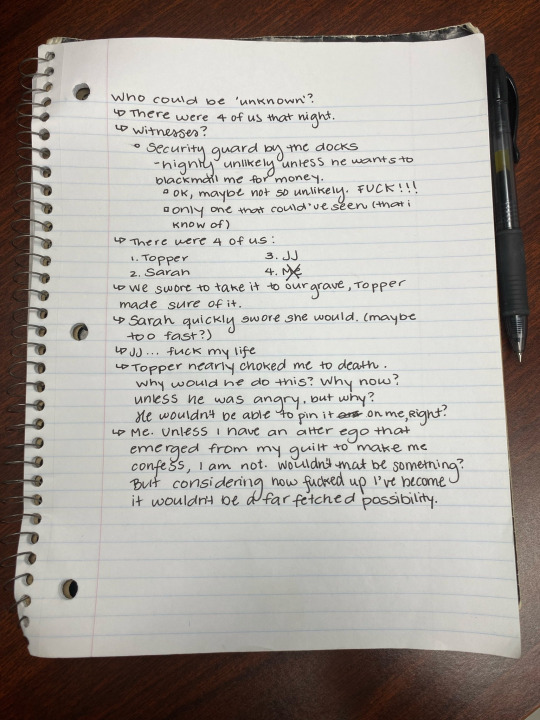 Who could be 'unknown'?
↳ There were 4 of us that night.
↳ Witnesses?
° Security guard by the docks
- highly unlikely unless he wants to
blackmail me for money.
▫ OK, maybe not so unlikely. FUCK!!!
▫ only one that could've seen (that i
know of)
↳ There were 4 of us:
1. Topper 3. JJ
2. Sarah 4. Me
↳ We swore to take it to our grave, Topper
made sure of it.
↳ Sarah quickly swore she would. (maybe
too fast?)
↳ JJ... fuck my life
↳ Topper nearly choked me to death.
Why would he do this? Why now?
unless he was angry, but why?
He wouldn't be able to pin it on me, Right?
↳ Me. Unless I have an alter ego that
emerged from my guilt to make me
confess, I am not. Wouldn't that be something?
But considering how fucked up I've become
it wouldn't be a far fetched possibility.